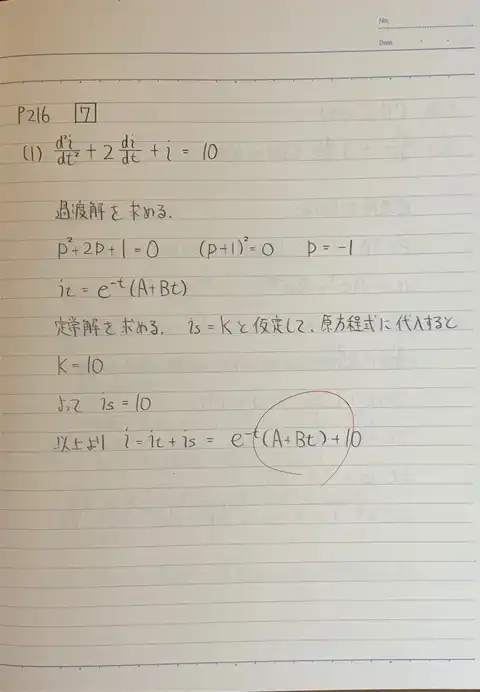 No.
Date
P216 7
(1) d²i/dt² + 2 di/dt + i = 10
過渡解を求める.
P²+2P+1=0 (P+1)²=0 P=-1
it = e^-t (A+Bt)
定常解を求める. is=Kと仮定して、原方程式に代入すると
K=10
よって is=10
以上より i=it+is= e^-t(A+Bt)+10